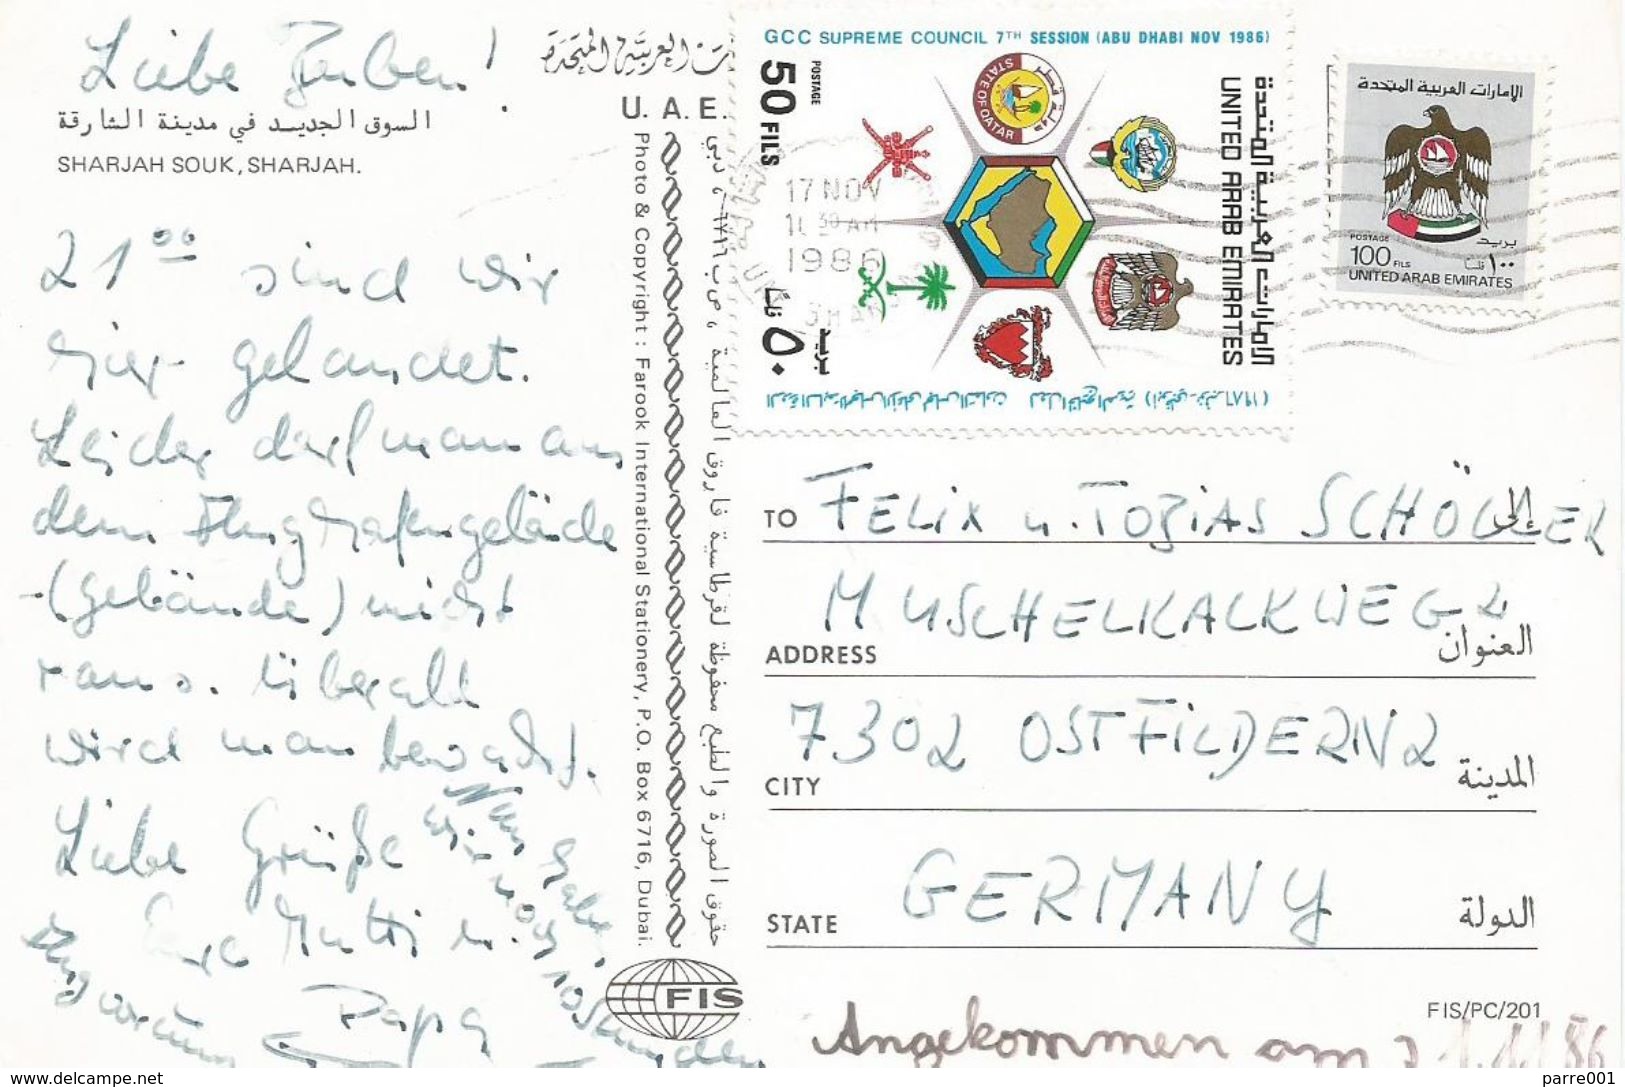 Liebe Buben!
السوق الجديد في مدينة الشارقة
SHARJAH SOUK, SHARJAH.
21⁰⁰ sind wir
hier gelandet.
Leider darf man aus
dem Flughafengebäude
(gebäude) nicht
raus. Überall
wird man bewacht.
Liebe Grüße
Eure Mutti u.
Papa
العربية المتحدة
U. A. E.
Photo & Copyright : Farook International Stationery, P.O. Box 6716, Dubai.
حقوق الصورة والطبع محفوظة لقرطاسية فاروق العالمية ، ص ب ٦٧١٦ ، دبي
FIS
GCC SUPREME COUNCIL 7TH SESSION (ABU DHABI NOV 1986)
POSTAGE
50 FILS
STATE OF QATAR
الامارات العربية المتحدة
UNITED ARAB EMIRATES
٥٠ فلسا
بريد
17 NOV
1986
الإمارات العربية المتحدة
POSTAGE بريد
100 FILS ١٠٠ فلسا
UNITED ARAB EMIRATES
TO FELIX u. TOBIAS SCHÖLLER إلى
ADDRESS MUSCHELKALKWEG 2 العنوان
CITY 7302 OSTFILDERN 2 المدينة
STATE GERMANY الدولة
FIS/PC/201
Angekommen am 21.11.86
parre001